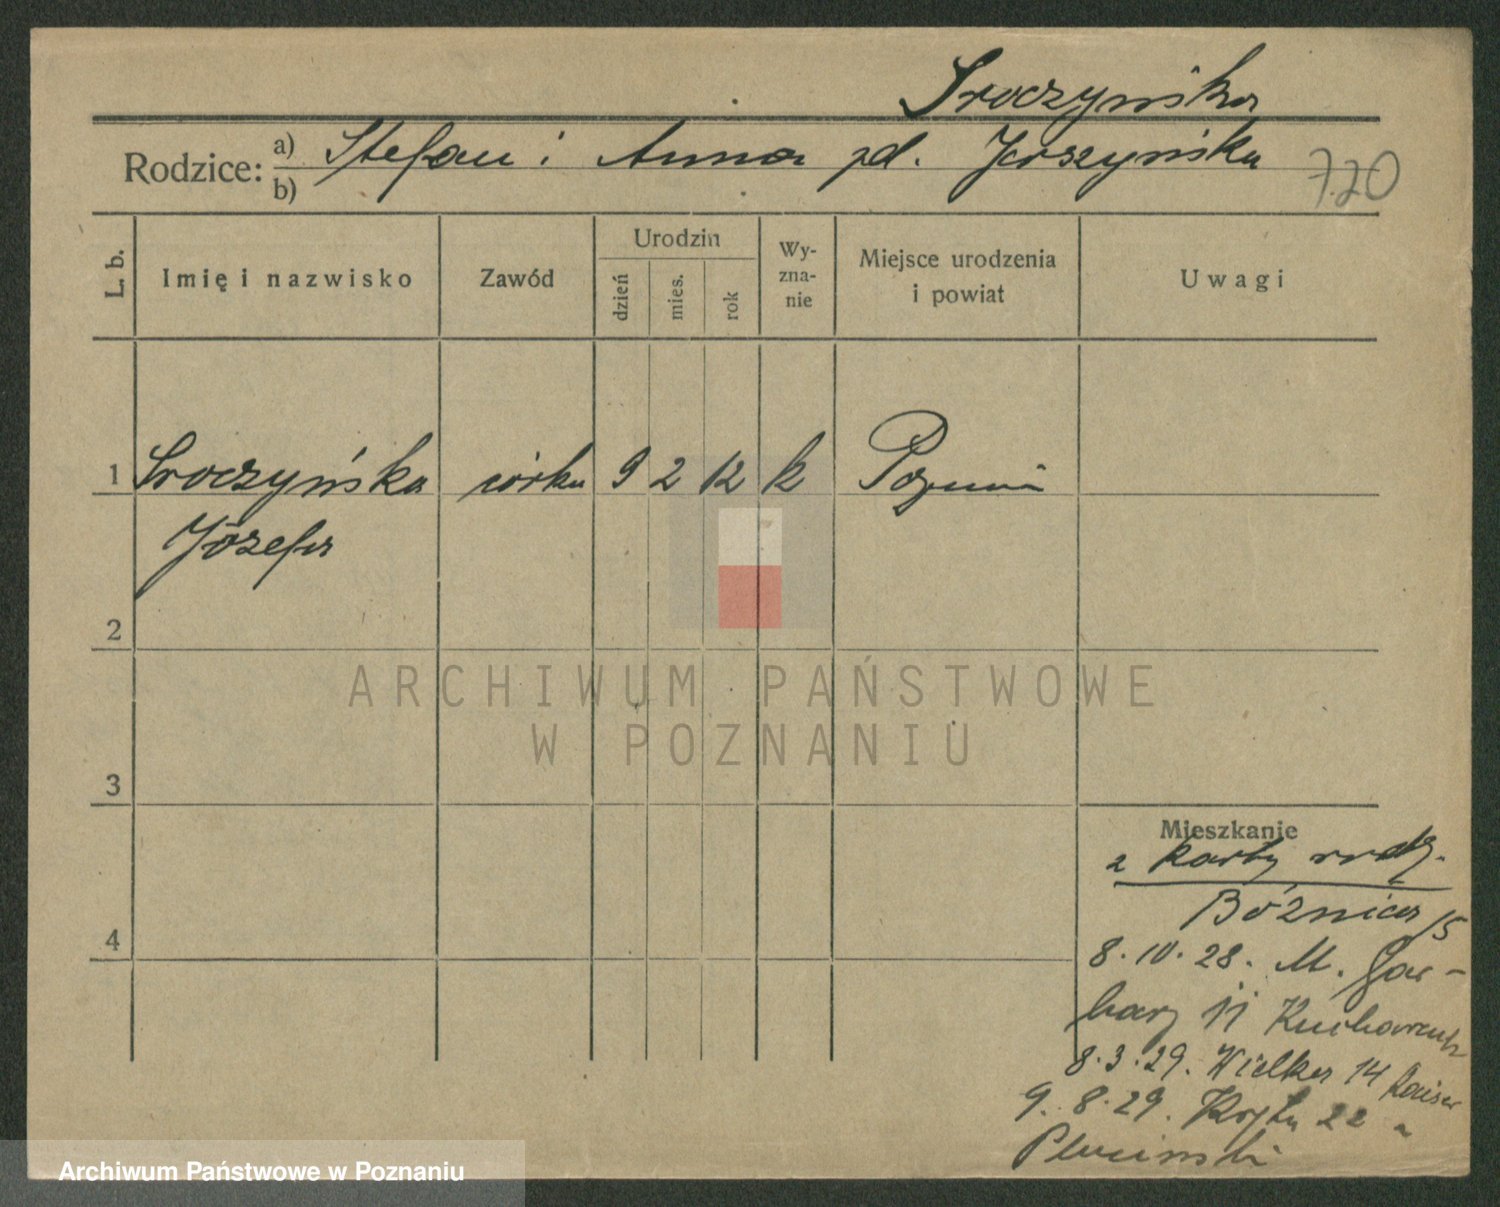 Sroczyńska
Rodzice: a) Stefan i Anna zd. Jerszyńska
b)
720
L. b.
Imię i nazwisko
Zawód
Urodzin
dzień
mies.
rok
Wy-
zna-
nie
Miejsce urodzenia
i powiat
Uwagi
1 Sroczyńska córka 9 2 12 k Poznań
Józefa
2
3
4
ARCHIWUM PAŃSTWOWE
W POZNANIU
Mieszkanie
z karty rodz.
Bóżnicza 15
8.10.28. M. Gar-
bary 11 Kucharczak
8.3.29. Wielka 14 Kaiser
9.8.29. Kręta 22 u
Plucinski
Archiwum Państwowe w Poznaniu